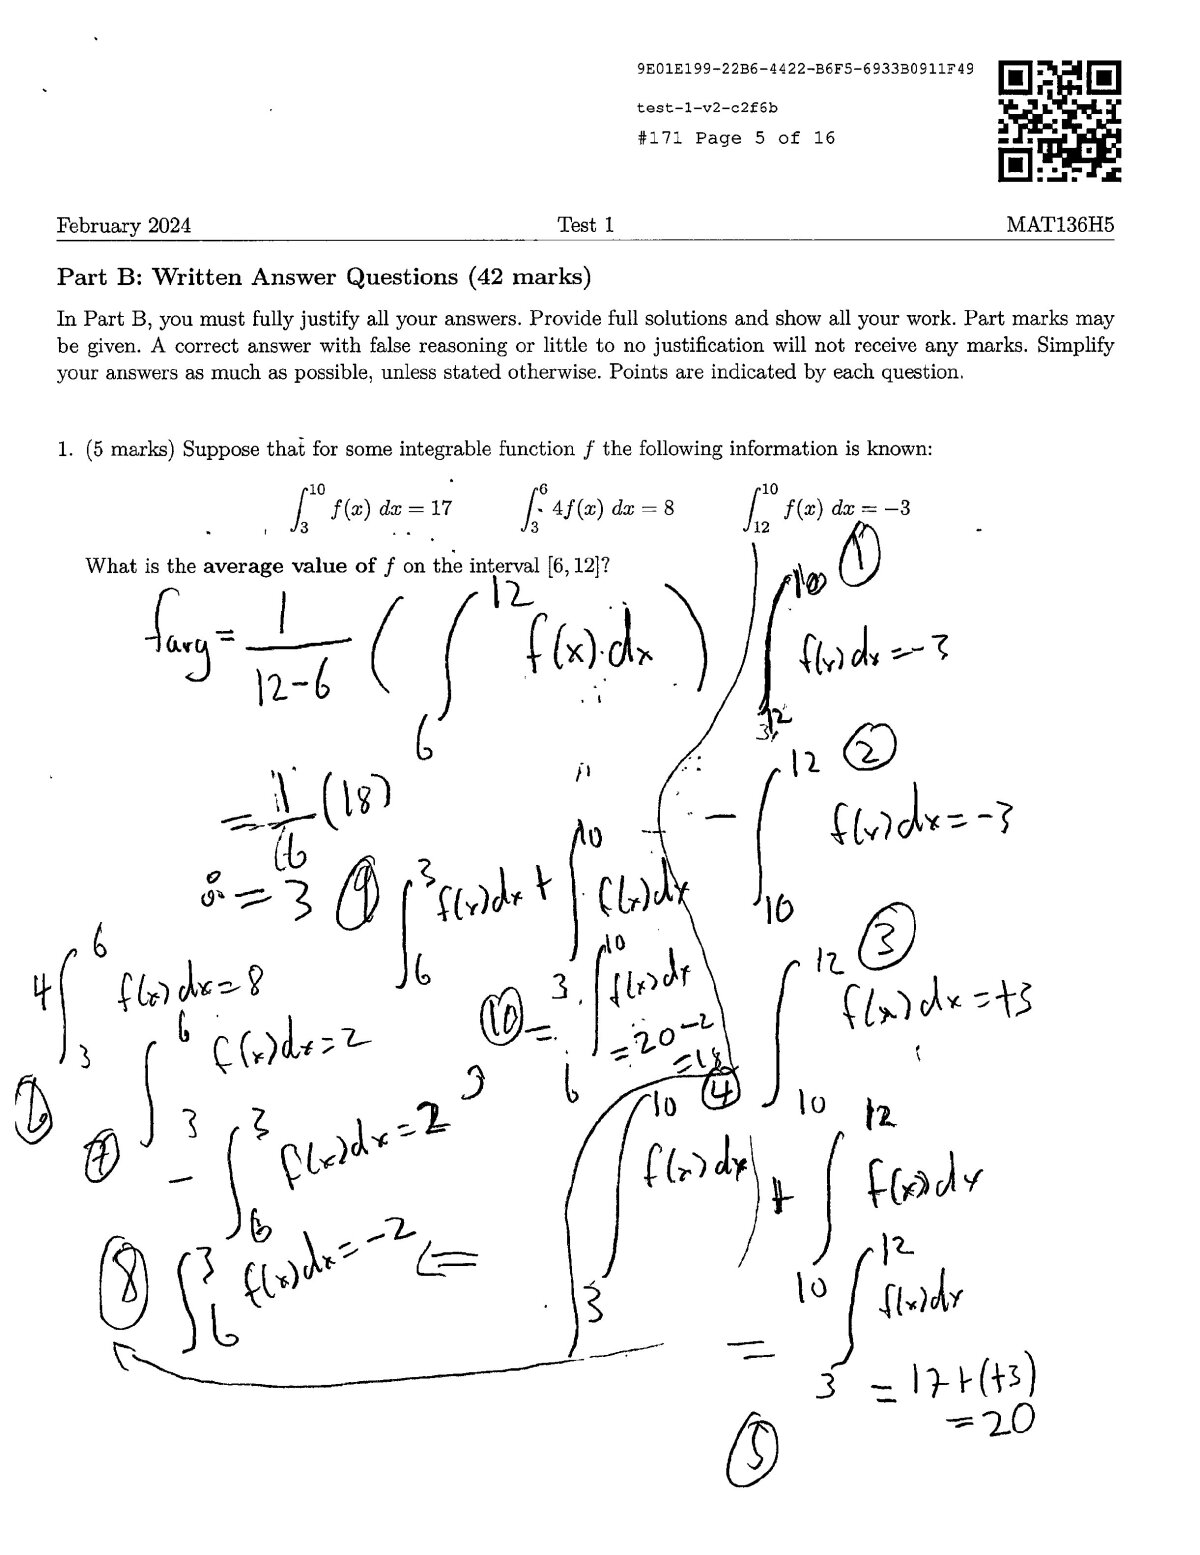 9E01E199-22B6-4422-B6F5-6933B0911F49
test-1-v2-c2f6b
#171 Page 5 of 16
February 2024 Test 1 MAT136H5
Part B: Written Answer Questions (42 marks)
In Part B, you must fully justify all your answers. Provide full solutions and show all your work. Part marks may
be given. A correct answer with false reasoning or little to no justification will not receive any marks. Simplify
your answers as much as possible, unless stated otherwise. Points are indicated by each question.
1. (5 marks) Suppose that for some integrable function f the following information is known:
∫_3^10 f(x) dx = 17 ∫_3^6 4f(x) dx = 8 ∫_12^10 f(x) dx = −3
What is the average value of f on the interval [6, 12]?
favg = 1/(12-6) ( ∫_6^12 f(x)·dx )
= 1/6 (18)
∴ = 3
① ∫_12^10 f(x)dx = -3
② - ∫_10^12 f(x)dx = -3
③ ∫_10^12 f(x)dx = +3
④ ∫_3^10 f(x)dx + ∫_10^12 f(x)dx
⑤ = ∫_3^12 f(x)dx
= 17+(+3)
= 20
⑥ 4∫_3^6 f(x)dx = 8
⑦ ∫_3^6 f(x)dx = 2
- ∫_6^3 f(x)dx = 2
⑧ ∫_6^3 f(x)dx = -2 ⇐
⑨ ∫_6^3 f(x)dx + ∫_3^10 f(x)dx
⑩ = ∫_6^10 f(x)dx
= 20-2
= 18